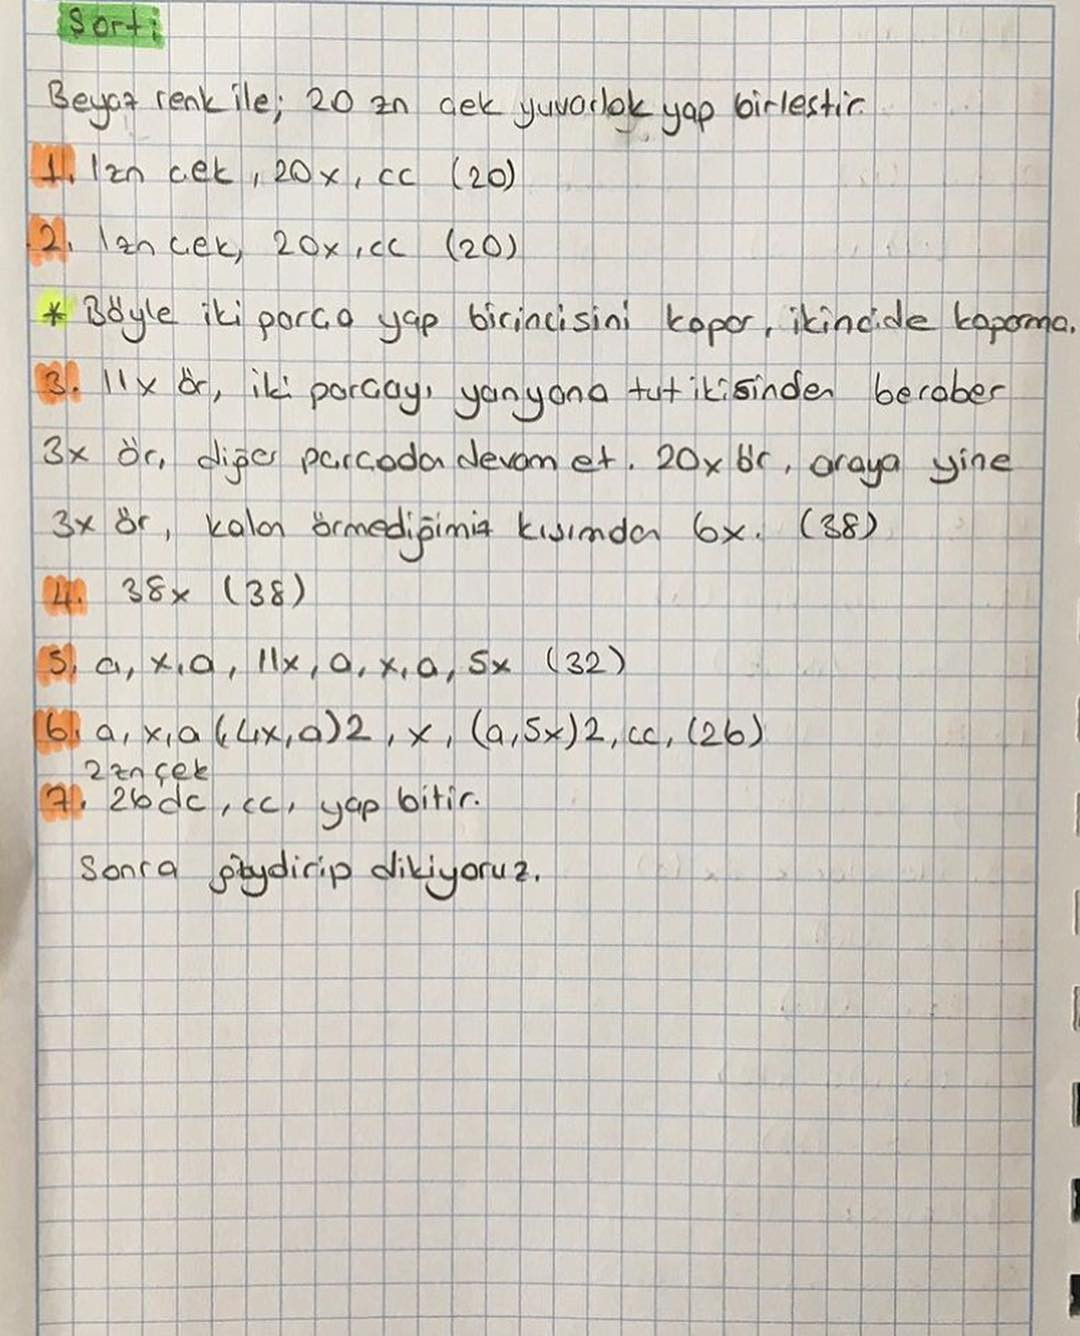 Şorti
Beyaz renk ile; 20 zn çek yuvarlak yap birleştir.
1. 1zn çek, 20x, cc (20)
2. 1zn çek, 20x, cc (20)
* Böyle iki parça yap birincisini kopar, ikincide koparma.
3. 11x ör, iki parçayı yanyana tut ikisinden beraber
3x ör, diğer parçadan devam et. 20x ör, araya yine
3x ör, kalan örmediğimiz kısımdan 6x. (38)
4. 38x (38)
5. a, x, a, 11x, a, x, a, 5x (32)
6. a, x, a (4x, a)2, x, (a, 5x)2, cc, (26)
2zn çek
7. 26dc, cc, yap bitir.
Sonra giydirip dikiyoruz.